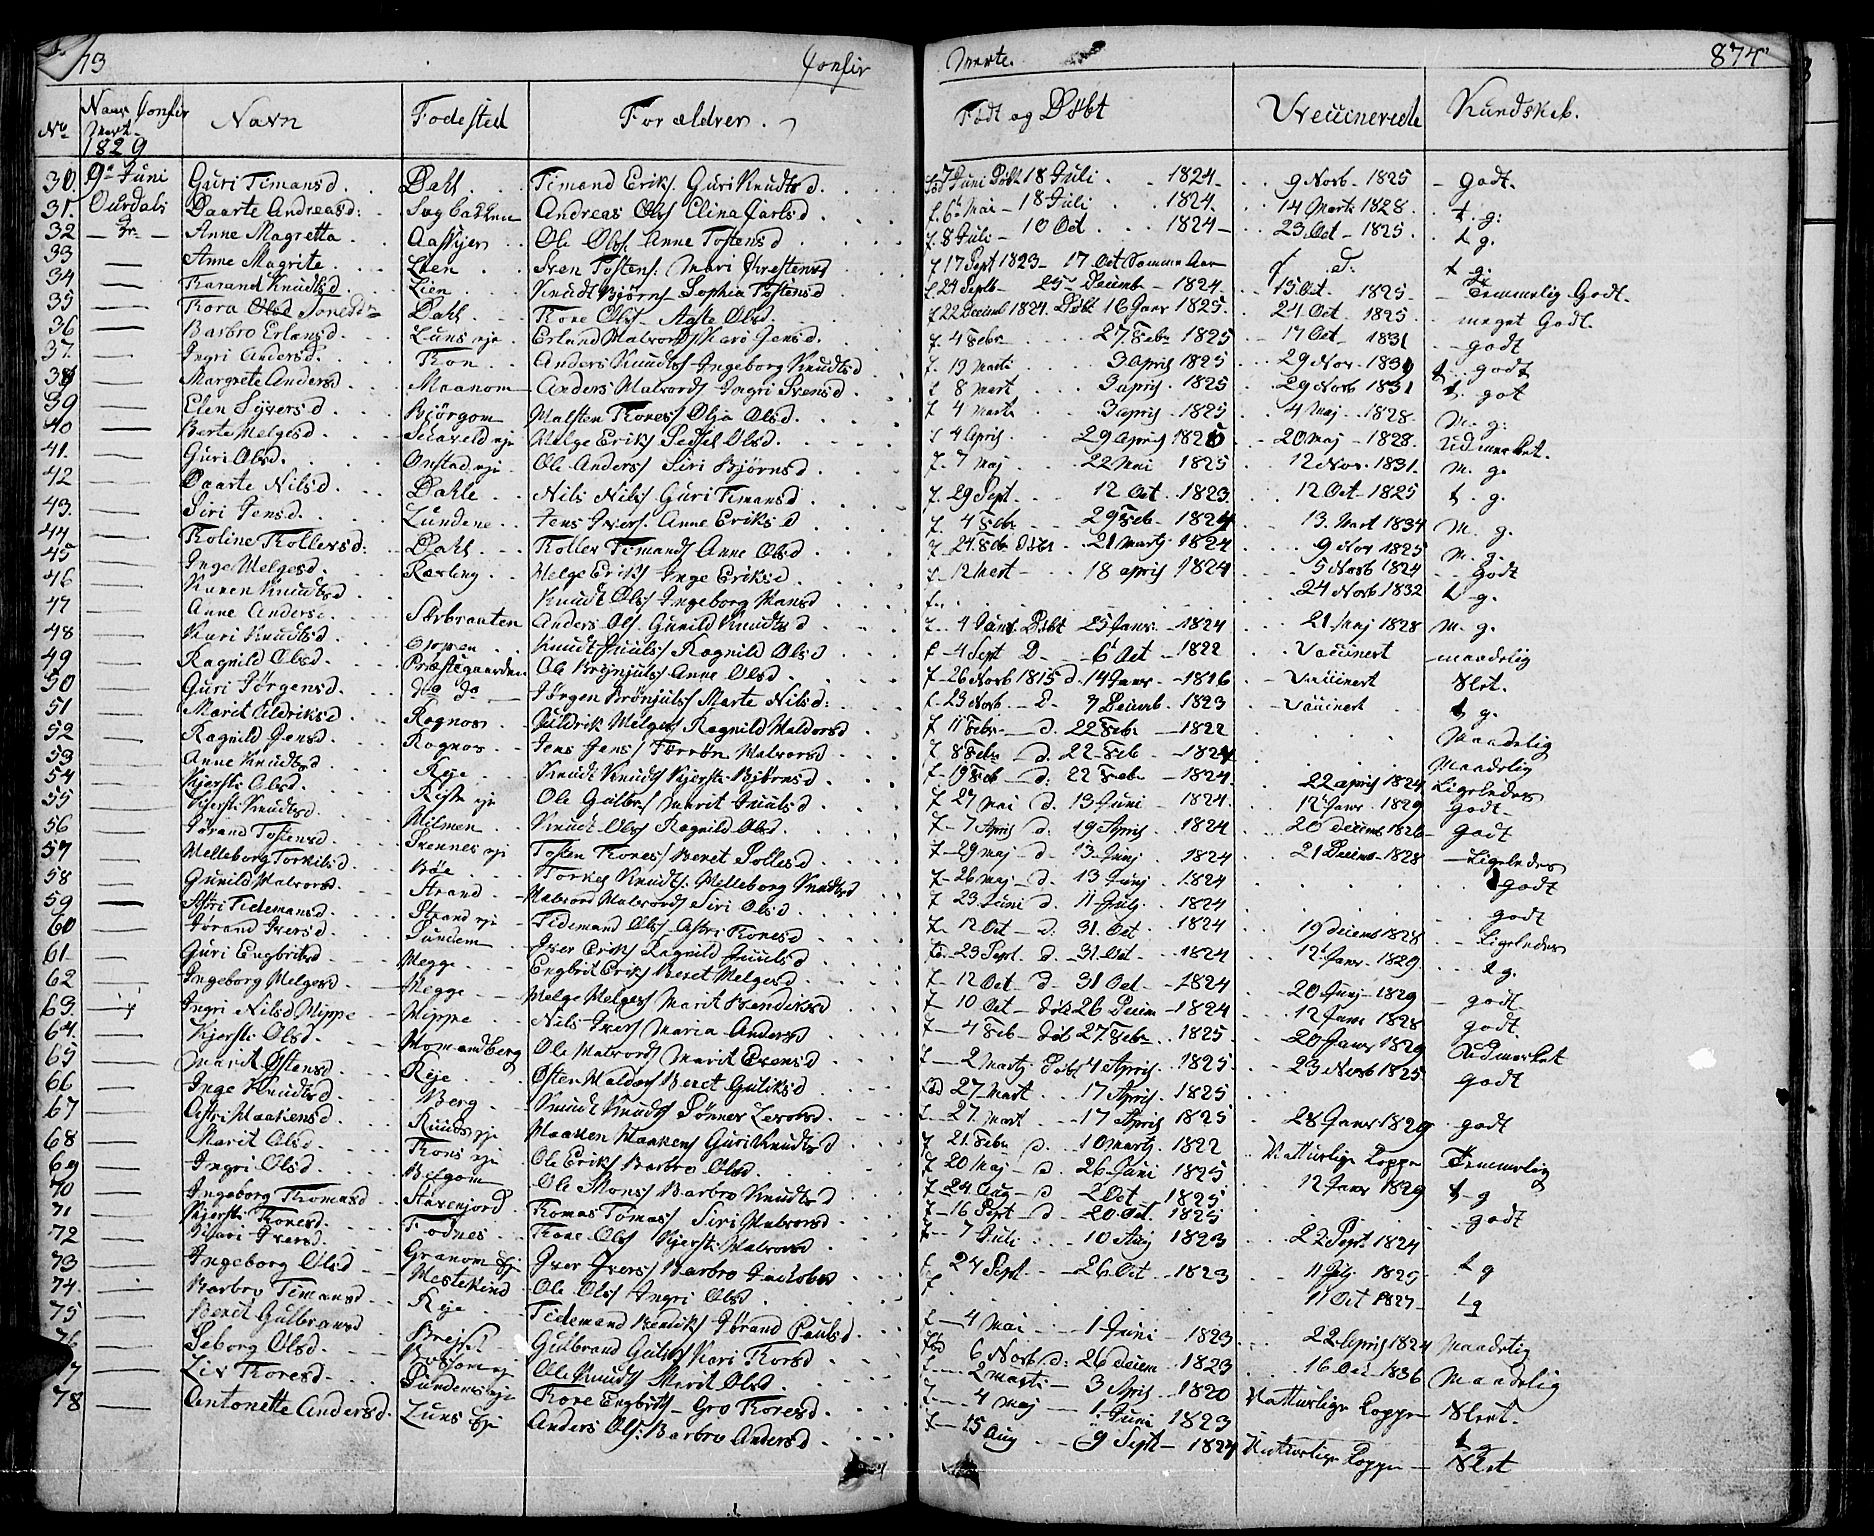 73 Confir merte. 874
No Naar Confir mert. 1829 Navn Fodested Forældrer. Født og Døbt Vaccinerede Kundskab.
30. 9de Juni Guri Timansd. Dahl Timand Eriks. Guri Knudtsd. 7 Juni Døbt 18 Juli 1824 9 Novb. 1825 Godt.
31. Ourdals Daarte Andreasd: Sagbakken Andreas Ols/ Elina Carlsd. f. 6 Mai 18 Juli 1824. 14 Marts 1828. t. g:
32 Anne Magretta Aaskjer Ole Ols/ Anne Tostensd f. 8 Juli 10 Oct 1824 23 Oct 1825. t g.
33 Anne Magrite Lien Sven Tostens. Mari f 17 Sept 1823 17 Oct Samme Aar t g.
34 Karand Knudtsd Lien Knudt Bjørns Sophia Tostensd f. 24 Septb 25 Decemb 1824. 15 Oct. 1825. Temmelig Godt.
35 Tora Olsd Dahl Tore Ols/ Aaste Olsd f 22 Decemb 1824. Døbt 16 Janr 1825. 24 Oct. 1825. meget Godt.
36 Barbro Erlansd. Luns eje Erland Halvords/ Mari Jensd. f. 4 Febr 27. Febr 1825 17 Oct 1831 godt
37. Ingri Andersd. Tron Anders Knudts Ingeborg Knudtsd f. 13 Marti 3 April 1825 29 Nov. 1831 t. godt
38 Margrete Andersd Maanom Anders Halvords Ingri Svensd f 8 Mart 3 april 1825 29 Novb 1831 t. got
39 Elen Syversd Bjørgom Halsten Tores/ Olia Olsd. f 4 Marts 3 april 1825 4 Maj 1828. M. g:
40 Berte Helgesd. eje Helge Eriks Sedsel Olsd. f 4 April 29 April 1825 20 Maj 1828. Udmerket.
41. Guri Olsd. Onstad eje Ole Anders/ Siri Bjørnsd. f. 7 Maj 22 Mai 1825 12 Nov. 1831. M. g.
42 Daarte Nilsd. Dahle Nils Nils/ Guri Timansd f 29 Sept 12 Oct 1823. 12 Oct 1825 t. g.
43. Siri Jensd. Lundene Jens Ivers/ Anne Eriksd f. 4 Febr 29 Feb 1824 13. Mart 1834 M. g.
44 Toline Tollevsd: Dahl Tollev Timands Anne Olsd f 24. Feb Døbt 21 Marts 1824 9 Nov 1825 M. g.
45 Inge Helgesd. Ræsleng Helge Eriks Inge Eriksd. f. 12 Mert 18 april 1824 5 Novb 1824 Godt
46 Karen Knudtsd Knudt Ols/ Ingeborg Hansd f. 24 Novb 1832 t. g.
47 Anne Andersd. Størbraaten Anders Ols. Gunild Knudtsd f. 4 Janr. Døbt 25 Janr. 1824 21 Maj 1828 M. g.
48 Kari Knudtsd. Knudt Juuls/ Ragnild Olsd f 4 Sept D. 6 Oct 1822 Vaccinert maadelig
49 Ragnild Olsd. Præstegaarden Ole Brynjuls/ Anne Olsd. f 26 Novb 1815 d. 14 Janr. 1816 Vaccinert Slet.
50 Guri Jørgensd. do do Jørgen Brønjuls/ Marte Nilsd: f. 23 Novb. D. 7 Decemb. 1823 Vaccinert t g.
51 Marit Uldriksd. Rognos Uldrik Helges/ Ragnild Haldorsd f 11 Febr d. 22 Febr. 1822 Maadelig
52 Ragnild Jensd. Rognos Jens Jens/ Torrøn Halvorsd. f 8 Febr d. 22 Feb 1824 Maadelig
53 Anne Knudtsd Reje Knudt Knuds/ Kjersti Bjørnsd. f. 19 Feb d. 22 Febr 1824. 22 april 1824 Ligeledes
54 Kjersti Olsd. Riste eje Ole Gulbrs/ Marit Juulsd f 27 Mai d. 13 Juni 1824. 12 Janr 1829 Godt
55 Kjersti Knudtsd. Hilmen Knudt Ols/ Ragnild Olsd. f. 7 April d. 19 April 1824 20 Decemb 1826 Godt
56 Jørand Tostensd. eje Tosten Tores/ Beret Pollesd. f. 29 Maj d. 13 Junj 1824 21 Decem. 1828 Ligeledes
57 Helleborg Torkilsd. Bøe Torkel Knudts. Helleborg Knudtsd f. 26 Maj d. 13 Junj 1824 godt
58 Gunild Halvorsd. Strand Halvord Halvords/ Siri Olsd. f 23 Juni d. 11 July. 1824 godt
59 Astri Tidemansd. Strand eje Tidemand Ols/ Astri Toresd f. 12 Oct d. 31 Oct 1824 19 decemb 1828 Ligeledes
60 Jørand Iversd. Sundem Iver Eriks Ragnild Juulsd f. 23 Sept. d. 31 Oct. 1824 12 Janr. 1829 t g.
61 Guri Engbritsd Hegge Engbrit Eriks/ Beret Helgesd. f. 12 Oct d. 31 Oct 1824 20 Junj 1829 godt
62 Ingeborg Helgesd Hegge Helge Helges/ Marit Bendiksd f. 10 Oct døbt 26 Decem 1824 12 Janr 1828 godt
63. Ingri Nilsd Hippe Hippe Nils Ivers/ Maria Andersd f 4 Feb døbt 27 Febr. 1825 20 Janr 1829 Udmerket
64. Kjersti Olsd. Homandberg Ole Halvords/ Marit Evensd f. 2 Marts Døbt 4 April. 1825. 23 Novb 1825 godt
65 Marit Østensd. Reje Østen Haldors/ Beret Guliksd 27 Mart 17 April. 1825
66 Inge Knudtsd. Berg Knudt Knudts/ f. 27. mart 17 April 1825 28 Janr 1829 godt
67 Astri Haakensd. Ruuds eje Haaken Haakens/ Guri Knudtsd f 21. Febr d. 10 Marts. 1822 Nattuslige Kopper Temmelig
68 Marit Olsd. Trons eje Ole Eriks/ Barbro Olsd. f 20 Maj d. 26 Juni 1825 12 Janr 1829 t. g
69 Ingri Olsd. Belgom Ole Mons/ Barbro Knudtsd f. 24 Aug d 2 Oct 1825 godt
70 Ingeborg Thomasd Støvenjord Tomas Tomas/ Siri Halvorsd f. 16 Sept d. 20 Oct. 1825
71 Kjersti Toresd. Fodnes Tore Ols/ Kjersti Halvorsd f 7 Juli 10 Aug 1823 22 Sept. 1824
72 Kari Iversd. Granom Eje Iver Ivers/ Barbro Jacobsd f 24 Sept. 26 Oct. 1823 11 July. 1825 t g
73 Ingeborg Olsd Mestekind Ole Ols/ Ingri Olsd f 11 Oct 1827 t g
74. Barbro Timansd. Reje Tidemand Bendiks Jørand Paulsd. f. 4 Mai 1 Juni 1823 22 April 1824 Maadelig
75 Beret Gulbransd Gulbrand Guliks/ Kari Torsd. 6 Novb d. 26 Decem 1823 16 Dec 1836 Maadelig
76 Seborg Olsd. Ole Knudts/ Marit Olsd. f. 2 Marts 3 April 1820 Nattuslige Kopper Slet.
77 Liv Toresd. Sundems eje Tore Engbrits Gro Toresd. f. 4 Maj 1. Juni 1823 t g
78 Antonette Andersd. Luns Eje Anders Ols: Barbro Andersd f. 15 Aug 9 Sept 1824 Nattuslige Kopper Slet